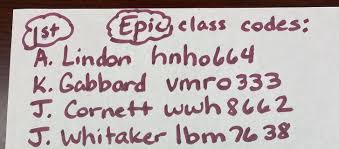 1st Epic! class codes:
A. Lindon hnho664
K. Gabbard vmro333
J. Cornett wwh8662
J. Whitaker lbm7638